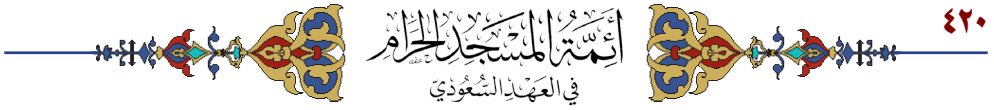 ٤٢٠
أَئِمَّةُ المَسْجِدِ الحَرَامِ
في العَهْدِ السُّعُودِيّ